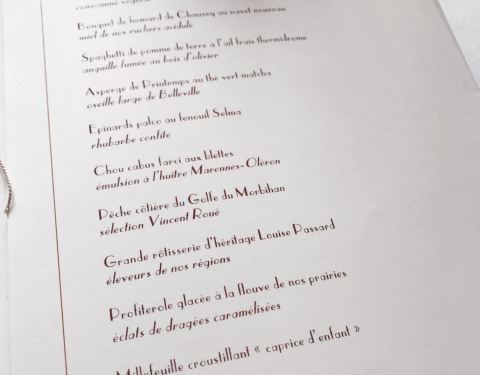 consommé végétal
Bouquet de homard de Chausey au navet nouveau
miel de nos ruchers acidulé
Spaghetti de pomme de terre à l'ail frais thermidrome
anguille fumée au bois d'olivier
Asperge de Printemps au thé vert matcha
oseille large de Belleville
Epinards palco au fenouil Selma
rhubarbe confite
Chou cabus farci aux blettes
émulsion à l'huître Marennes-Oléron
Pêche côtière du Golfe du Morbihan
sélection Vincent Roué
Grande rôtisserie d'héritage Louise Passard
éleveurs de nos régions
Profiterole glacée à la flouve de nos prairies
éclats de dragées caramélisées
Millefeuille croustillant « caprice d'enfant »